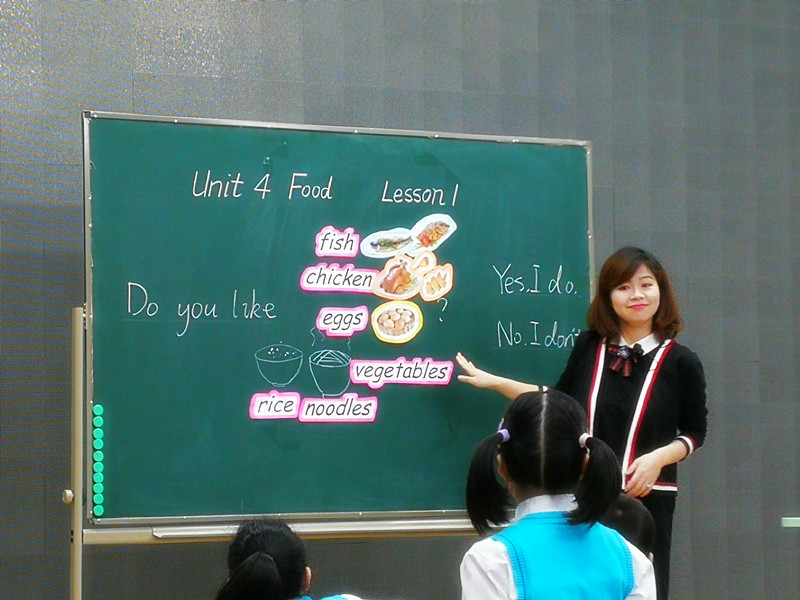 Unit 4 Food Lesson 1
fish
chicken
Do you like eggs ?
vegetables
rice noodles
Yes. I do.
No. I don't